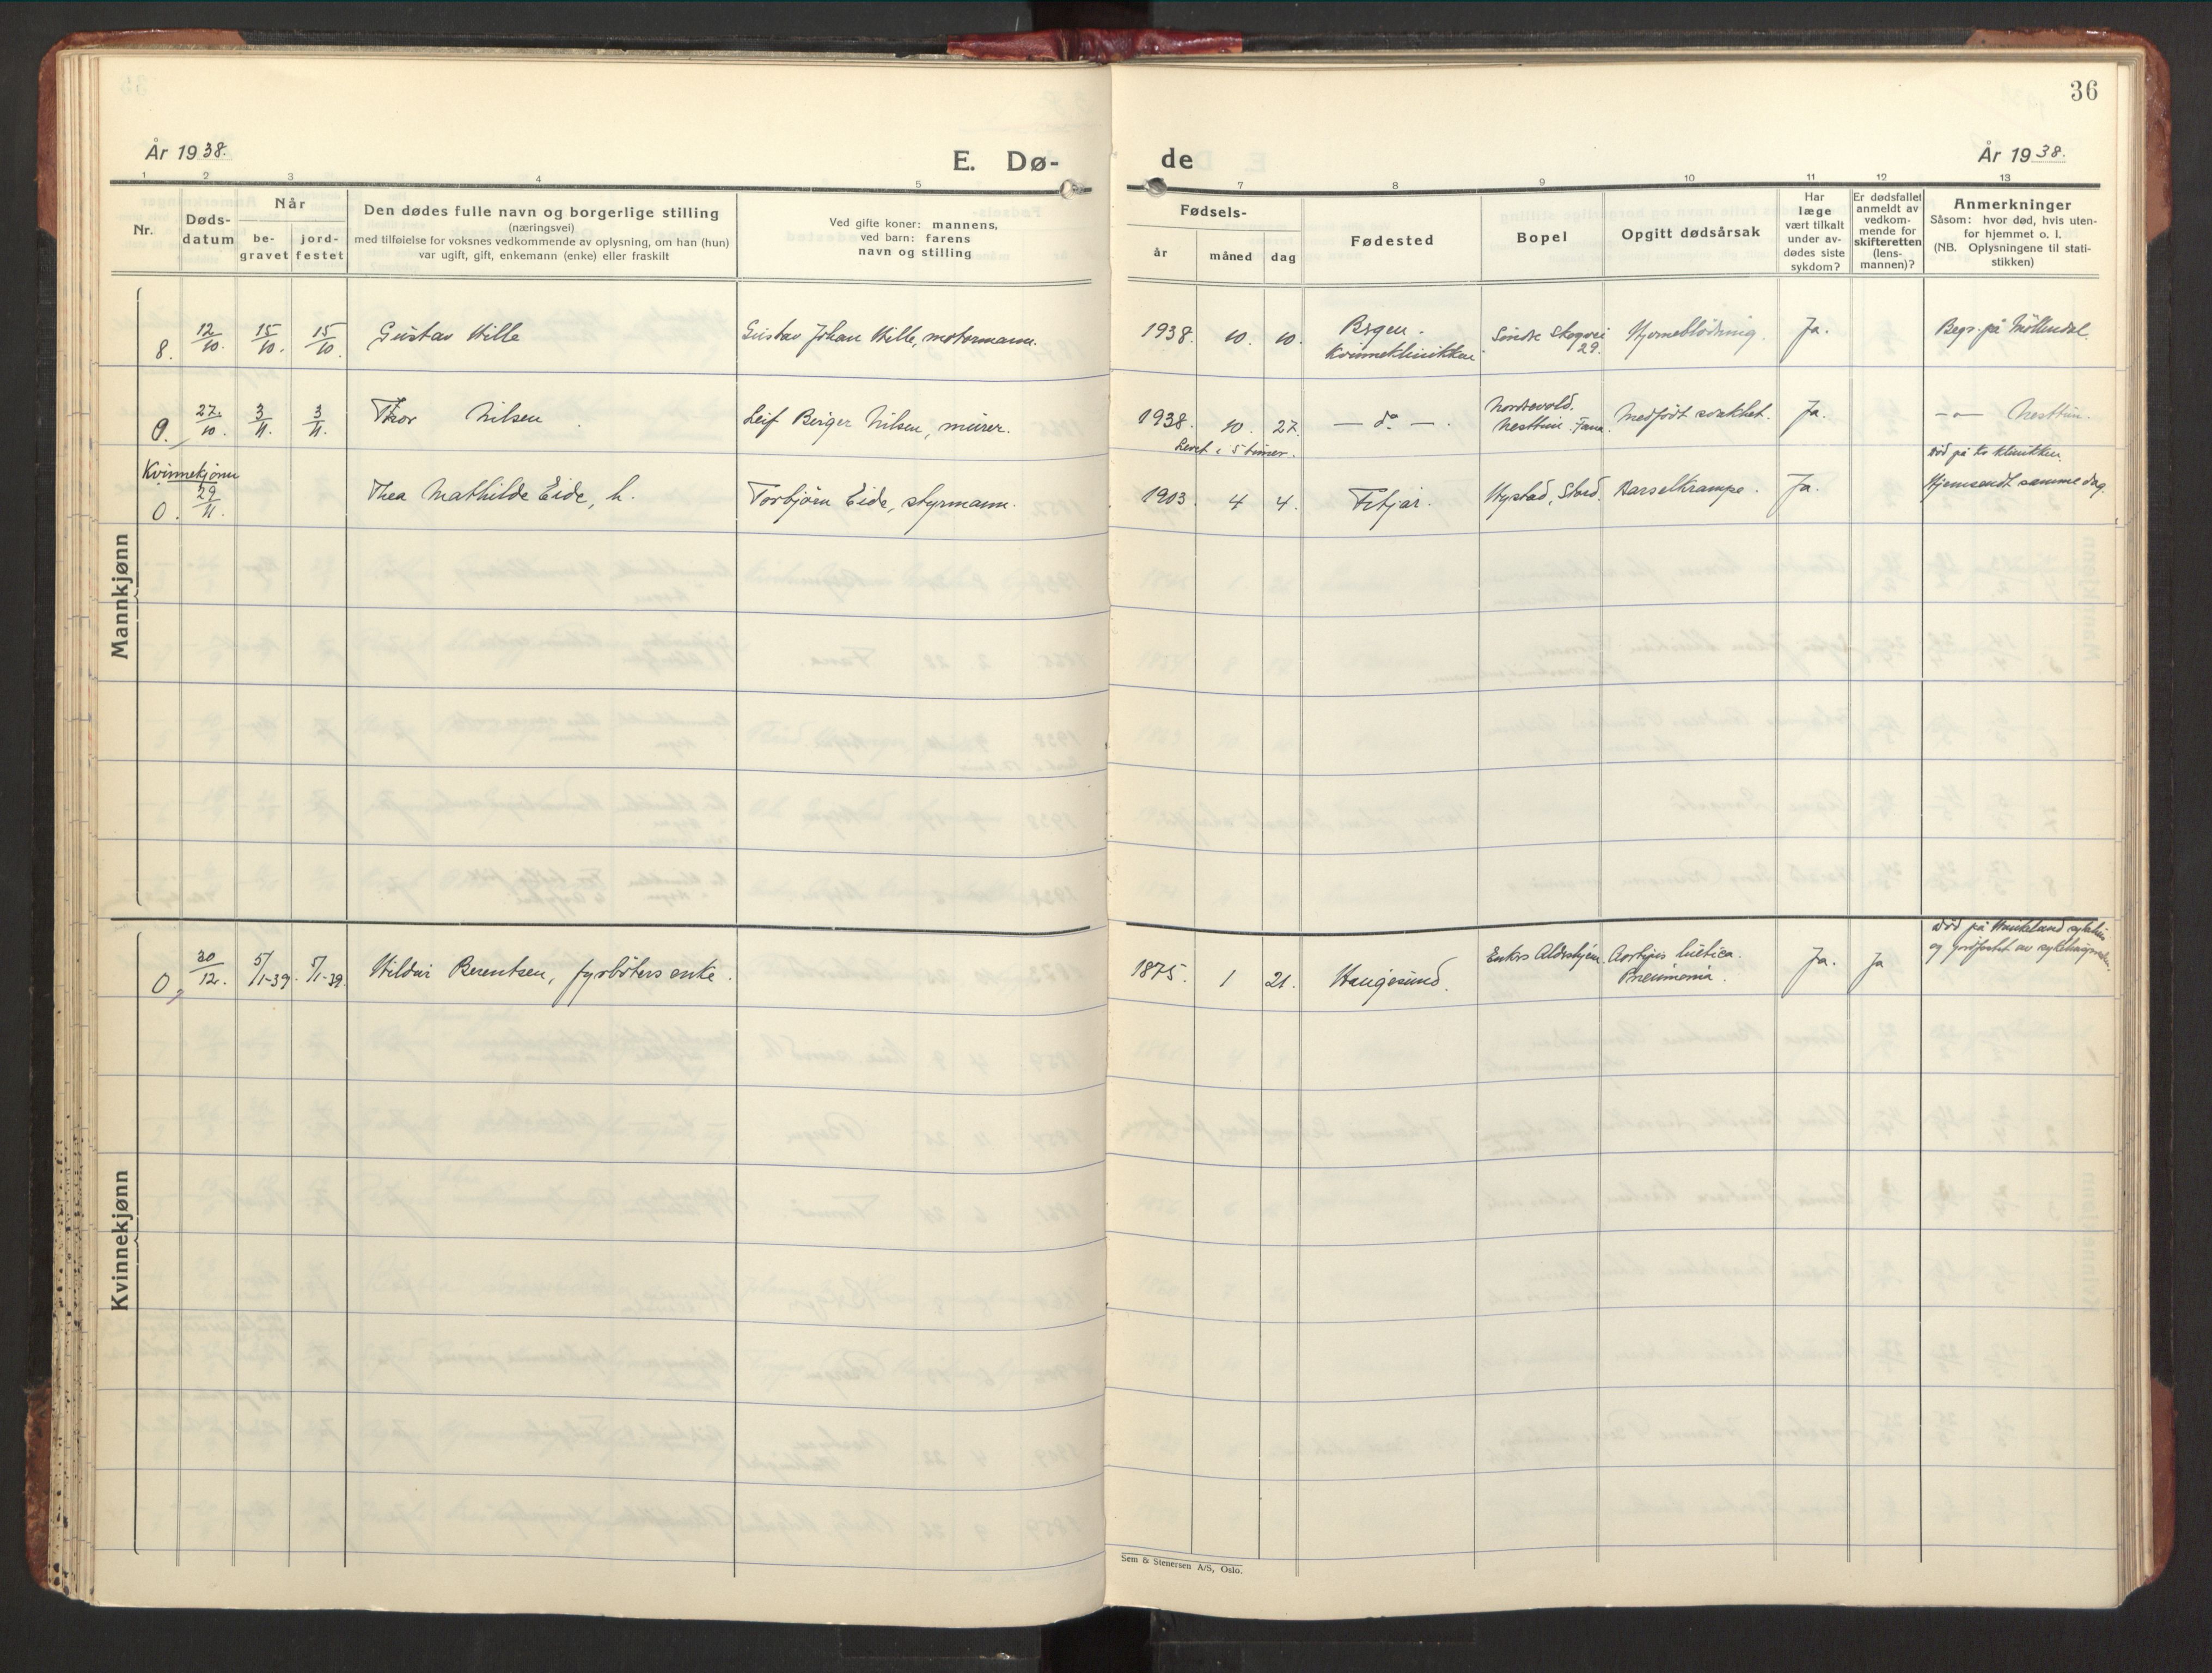 36
År 1938.
E. Dø-
de
År 1938.
1 2 3 4 5 7 8 9 10 11 12 13
Nr.
Døds-
datum
Når
be-
gravet
jord-
festet
Den dødes fulle navn og borgerlige stilling
(næringsvei)
med tilføielse for voksnes vedkommende av oplysning, om han (hun)
var ugift, gift, enkemann (enke) eller fraskilt
Ved gifte koner: mannens,
ved barn: farens
navn og stilling
Fødsels-
år
måned
dag
Fødested
Bopel
Opgitt dødsårsak
Har
læge
vært tilkalt
under av-
dødes siste
sykdom?
Er dødsfallet
anmeldt av
vedkom-
mende for
skifteretten
(lens-
mannen)?
Anmerkninger
Såsom: hvor død, hvis uten-
for hjemmet o. l.
(NB. Oplysningene til stati-
stikken)
Mannkjønn
8. 12/10. 15/10. 15/10. Gustav Wille Gustav Johan Wille, motormann. 1938. 10. 10. Bergen.
Kvinneklinikken Söndre Skogvei
29. Hjerneblödning. Ja. Begr. på Möllendal.
9. 27./10. 3/11. 3/11. Thor Nilsen Leif Birger Nilsen, murer. 1938. 10. 27. — do —. Nordrevold.
Nesttun. Fana. Medfödt svakhet. Ja. — " — Nesttun.
Levet i 5 timer.
Kvinnekjönn
0. 29/11. Thea Mathilde Eide, h. Torbjörn Eide, styrmann. 1903. 4 4. Fitjar. Hystad, Stord. Barselkrampe. Ja. död på kv klinikken.
Hjemsendt samme dag.
Kvinnekjønn
0, 30/12. 5/1-39. 5/1-39. Hildur Berentsen, fyrböters enke. 1875. 1 21. Haugesund. Enkes Aldershjem. Aortitis luetica.
Pneumonia. Ja. Ja död på Haukeland sykehus
og jordfestet av
Sem & Stenersen A/S, Oslo.